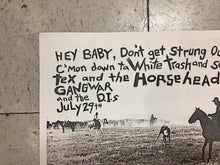 HEY BABY, Don't get Strung Ou
C'mon down ta White Trash and s
Tex and the Horsehead
GANGWAR
and the D.I.s
July 29th